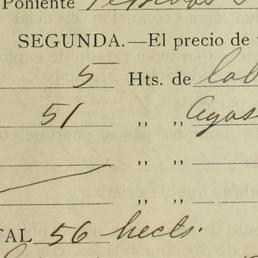 Poniente
SEGUNDA.—El precio de
5 Hts. de lab
51 ,, ,, Agos
,, ,,
,, ,,
TAL 56 hects.